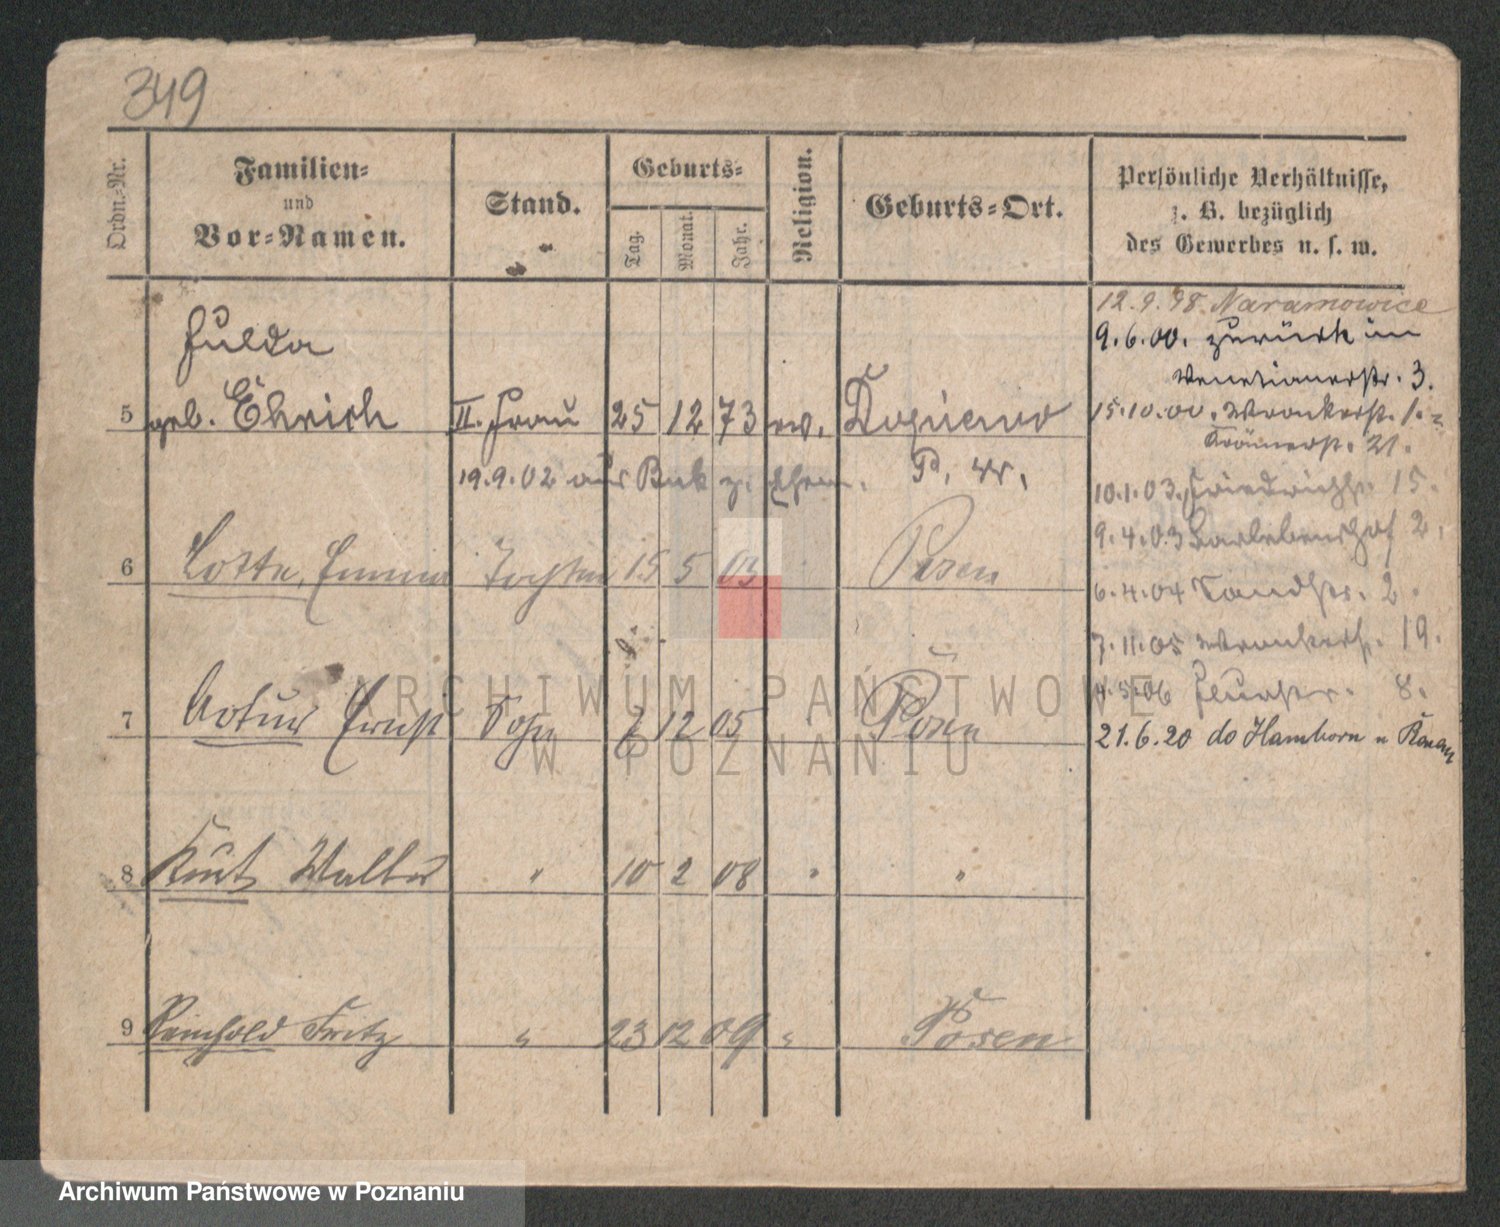 349
Ordn.-Nr.
Familien-
und
Vor-Namen.
Stand.
Geburts-
Tag.
Monat.
Jahr.
Religion.
Geburts-Ort.
Persönliche Verhältnisse,
z. B. bezüglich
des Gewerbes u. s. w.
12.9.98. Naramowice
9.6.00. zurück in
Venetianerstr. 3.
Hulda
5 geb. Ehrich II. Frau 25 12 73 ev.
15.10.00. Wronkerstr. 1.
Krämerstr. 21.
19.9.02 aus Buk z. Ehem. P. W.
10.1.03. Friedrichstr. 15.
9.4.03 2.
6 Lotte, Emma Tochter 15 5 03 Posen
6.4.04 Sandstr. 2.
7.11.05 Wronkerstr. 19.
4.5.06 8.
7 Artur Ernst Sohn 2 12 05 " Posen
21.6.20 do Hamborn
ARCHIWUM PAŃSTWOWE
W POZNANIU
8 Kurt Walter " 10 2 08 " "
9 Reinhold Fritz " 23 12 09 " Posen
Archiwum Państwowe w Poznaniu